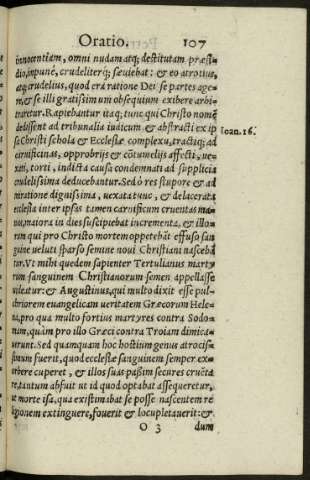 Oratio. 107
innocentiam, omni nudam atq; destitutam præsi-
dio, impunè, crudeliterq; sæuiebat: & eo atrocius,
atq; crudelius, quod ea ratione Dei se partes age-
re, & se illi gratissimum obsequium exhibere arbi-
traretur. Rapiebantur itaq; tunc qui Christo nomẽ
dedissent ad tribunalia iudicum & abstracti ex ip
sa Christi schola & Ecclesiæ complexu, tractiq; ad
Ioan. 16.
carnificinas, opprobrijs & cõtumelijs affecti, ue-
xati, torti, indicta causa condemnati ad supplicia
crudelissima deducebantur. Sed ò res stupore & ad
miratione dignissima, uexata tunc, & delacerata
ecclesia inter ipsas tamen carnificum cruentas ma-
nus, maiora in dies suscipiebat incrementa, & illo-
rum qui pro Christo mortem oppetebãt effuso san
guine ueluti sparso semine noui Christiani nascebã
tur. Vt mihi quedem sapienter Tertulianus marty
rum sanguinem Christianorum semen appellasse
uideatur: & Augustinus, qui multo dixit esse pul-
chriorem euangelicam ueritatem Græcorum Hele-
na, pro qua multo fortius martyres contra Sodo-
mum, quàm pro illo Græci contra Troiam dimica-
uerunt. Sed quamquam hoc hostium genus atrocis-
simum fuerit, quod ecclesiæ sanguinem semper ex-
haurire cuperet, & illos suas passim secures cruẽta
re, tantum abfuit ut id quod optabat assequeretur,
ut morte ista, qua existimabat se posse nascentem re
ligionem extinguere, fouerit & locupletauerit: &
O 3 dum